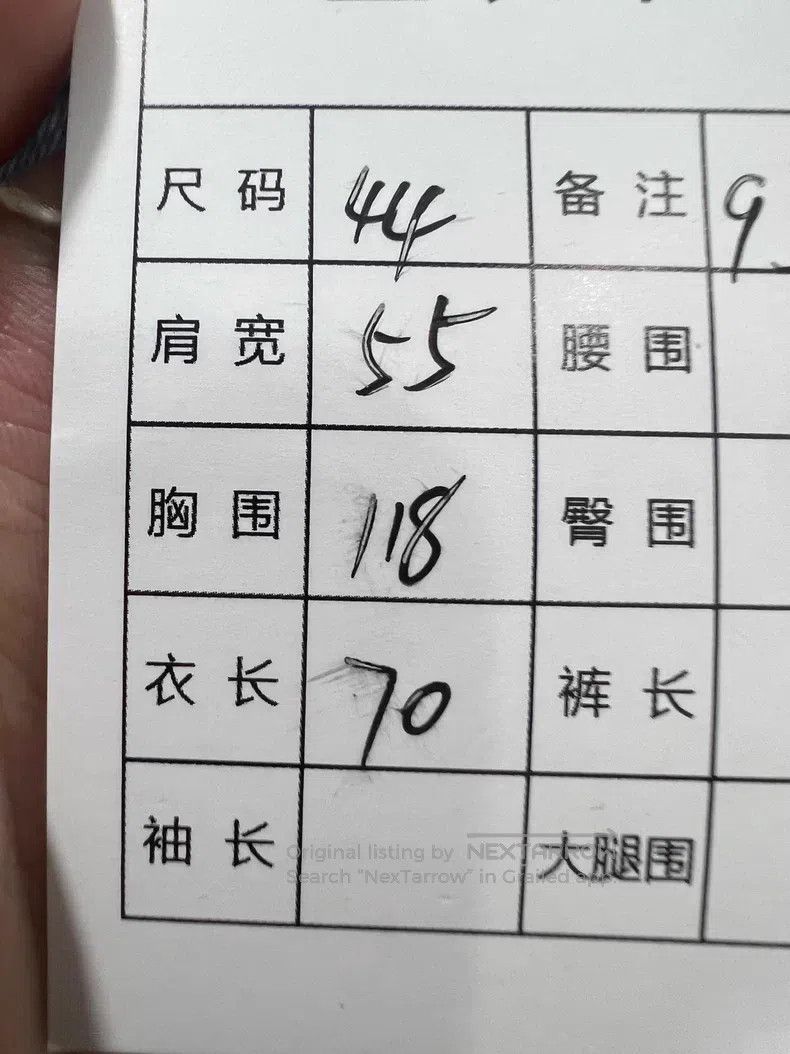 尺码 44 备注 9
肩宽 55 腰围
胸围 118 臀围
衣长 70 裤长
袖长 大腿围
Original listing by NEXTARROW
Search "NexTarrow" in Grailed app.